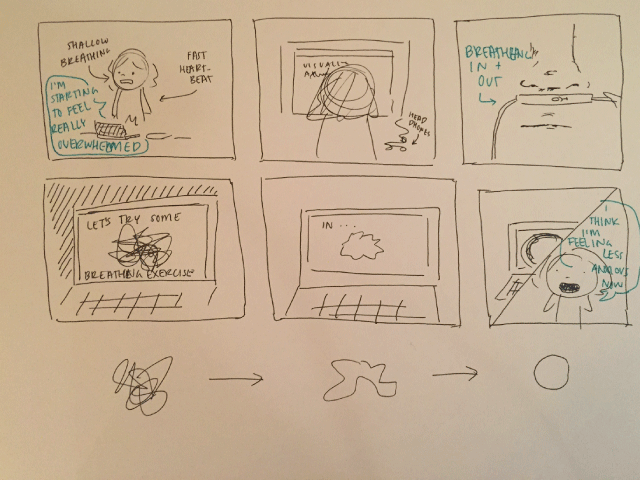 SHALLOW
BREATHING
FAST
HEART-
BEAT
I'M
STARTING
TO FEEL
REALLY
OVERWHELMED
HEAD
PHONES
BREATHING
IN +
OUT
LET'S TRY SOME
BREATHING EXERCISE
IN ...
I
THINK
I'M
FEELING
LESS
ANXIOUS
NOW